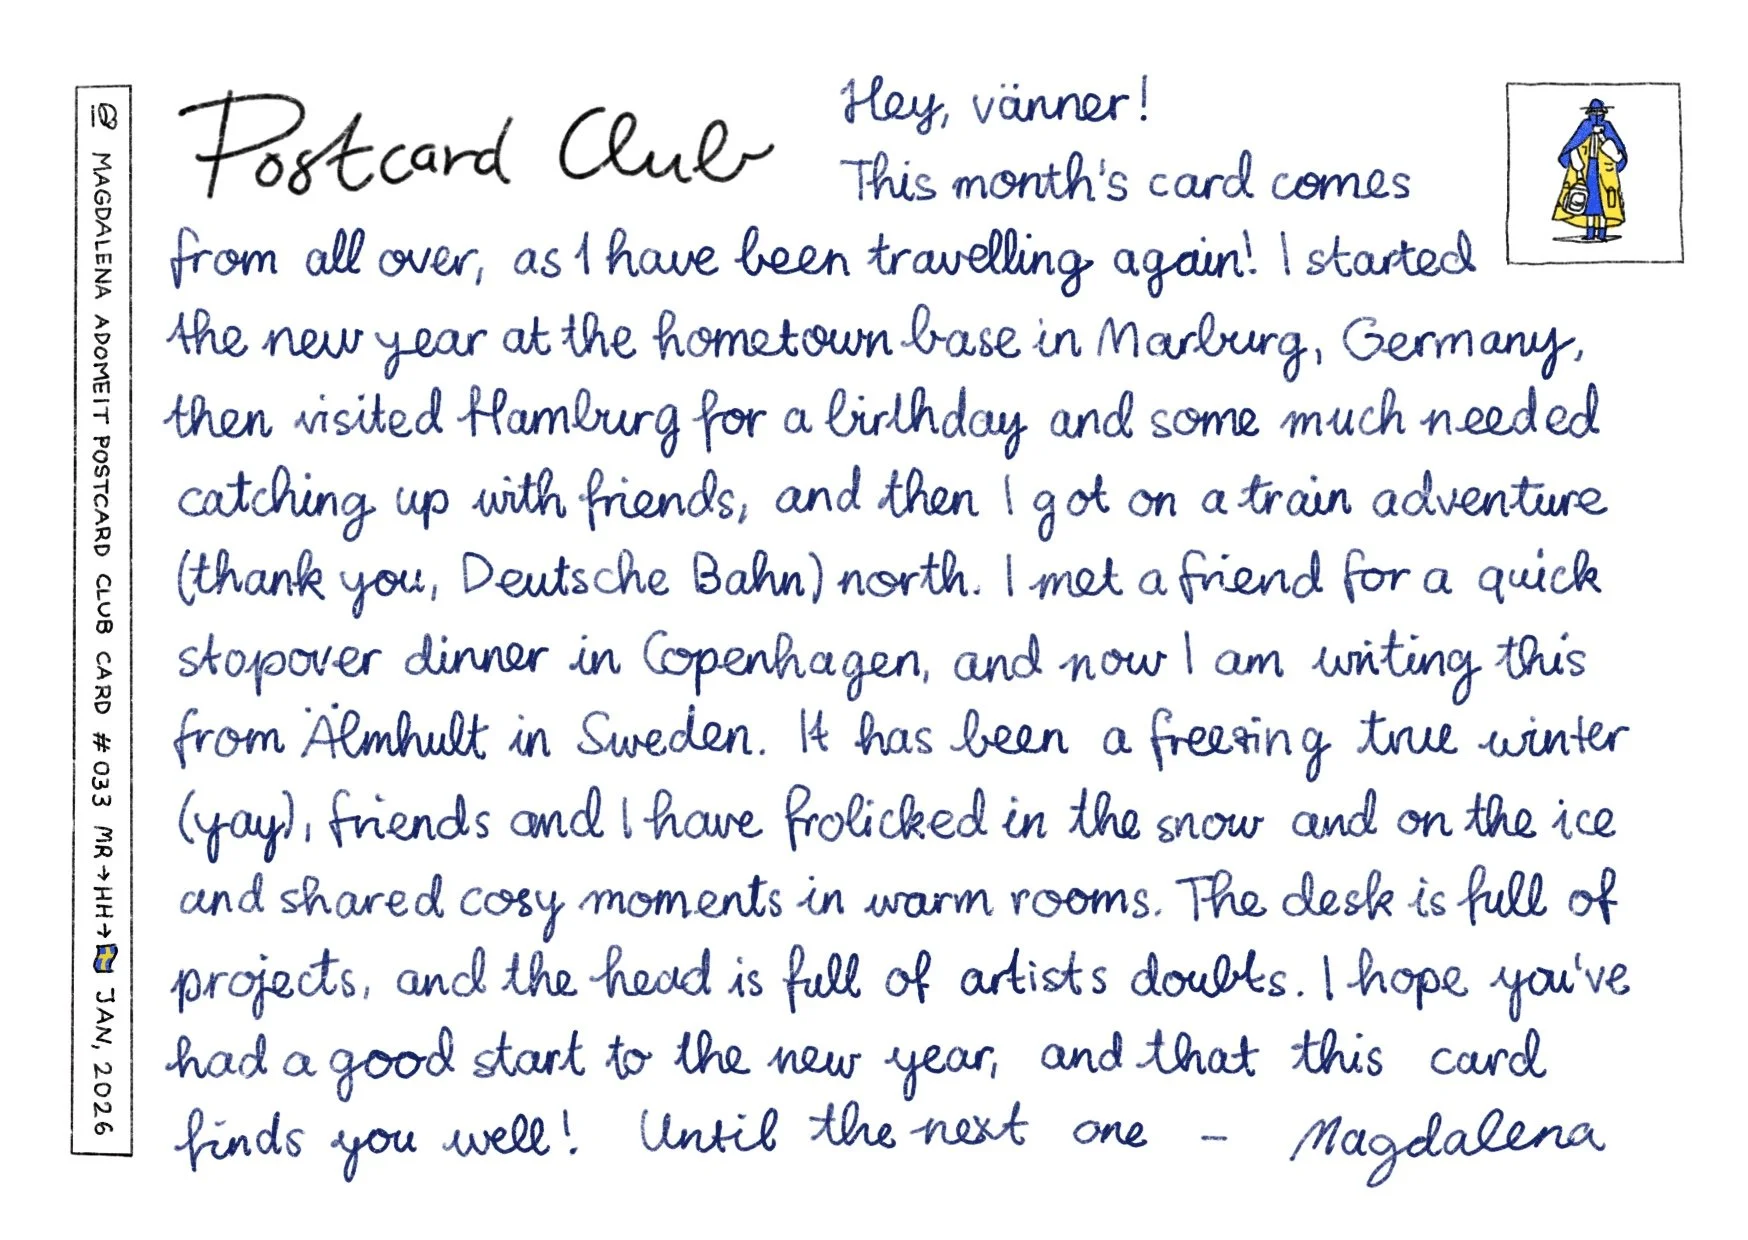 MAGDALENA ADOMEIT POSTCARD CLUB CARD # 033 MR→HH→🇸🇪 JAN, 2026
Postcard Club
Hey, vänner!
This month's card comes
from all over, as I have been travelling again! I started
the new year at the hometown base in Marburg, Germany,
then visited Hamburg for a birthday and some much needed
catching up with friends, and then I got on a train adventure
(thank you, Deutsche Bahn) north. I met a friend for a quick
stopover dinner in Copenhagen, and now I am writing this
from Älmhult in Sweden. It has been a freezing true winter
(yay), friends and I have frolicked in the snow and on the ice
and shared cosy moments in warm rooms. The desk is full of
projects, and the head is full of artists doubts. I hope you've
had a good start to the new year, and that this card
finds you well! Until the next one – Magdalena